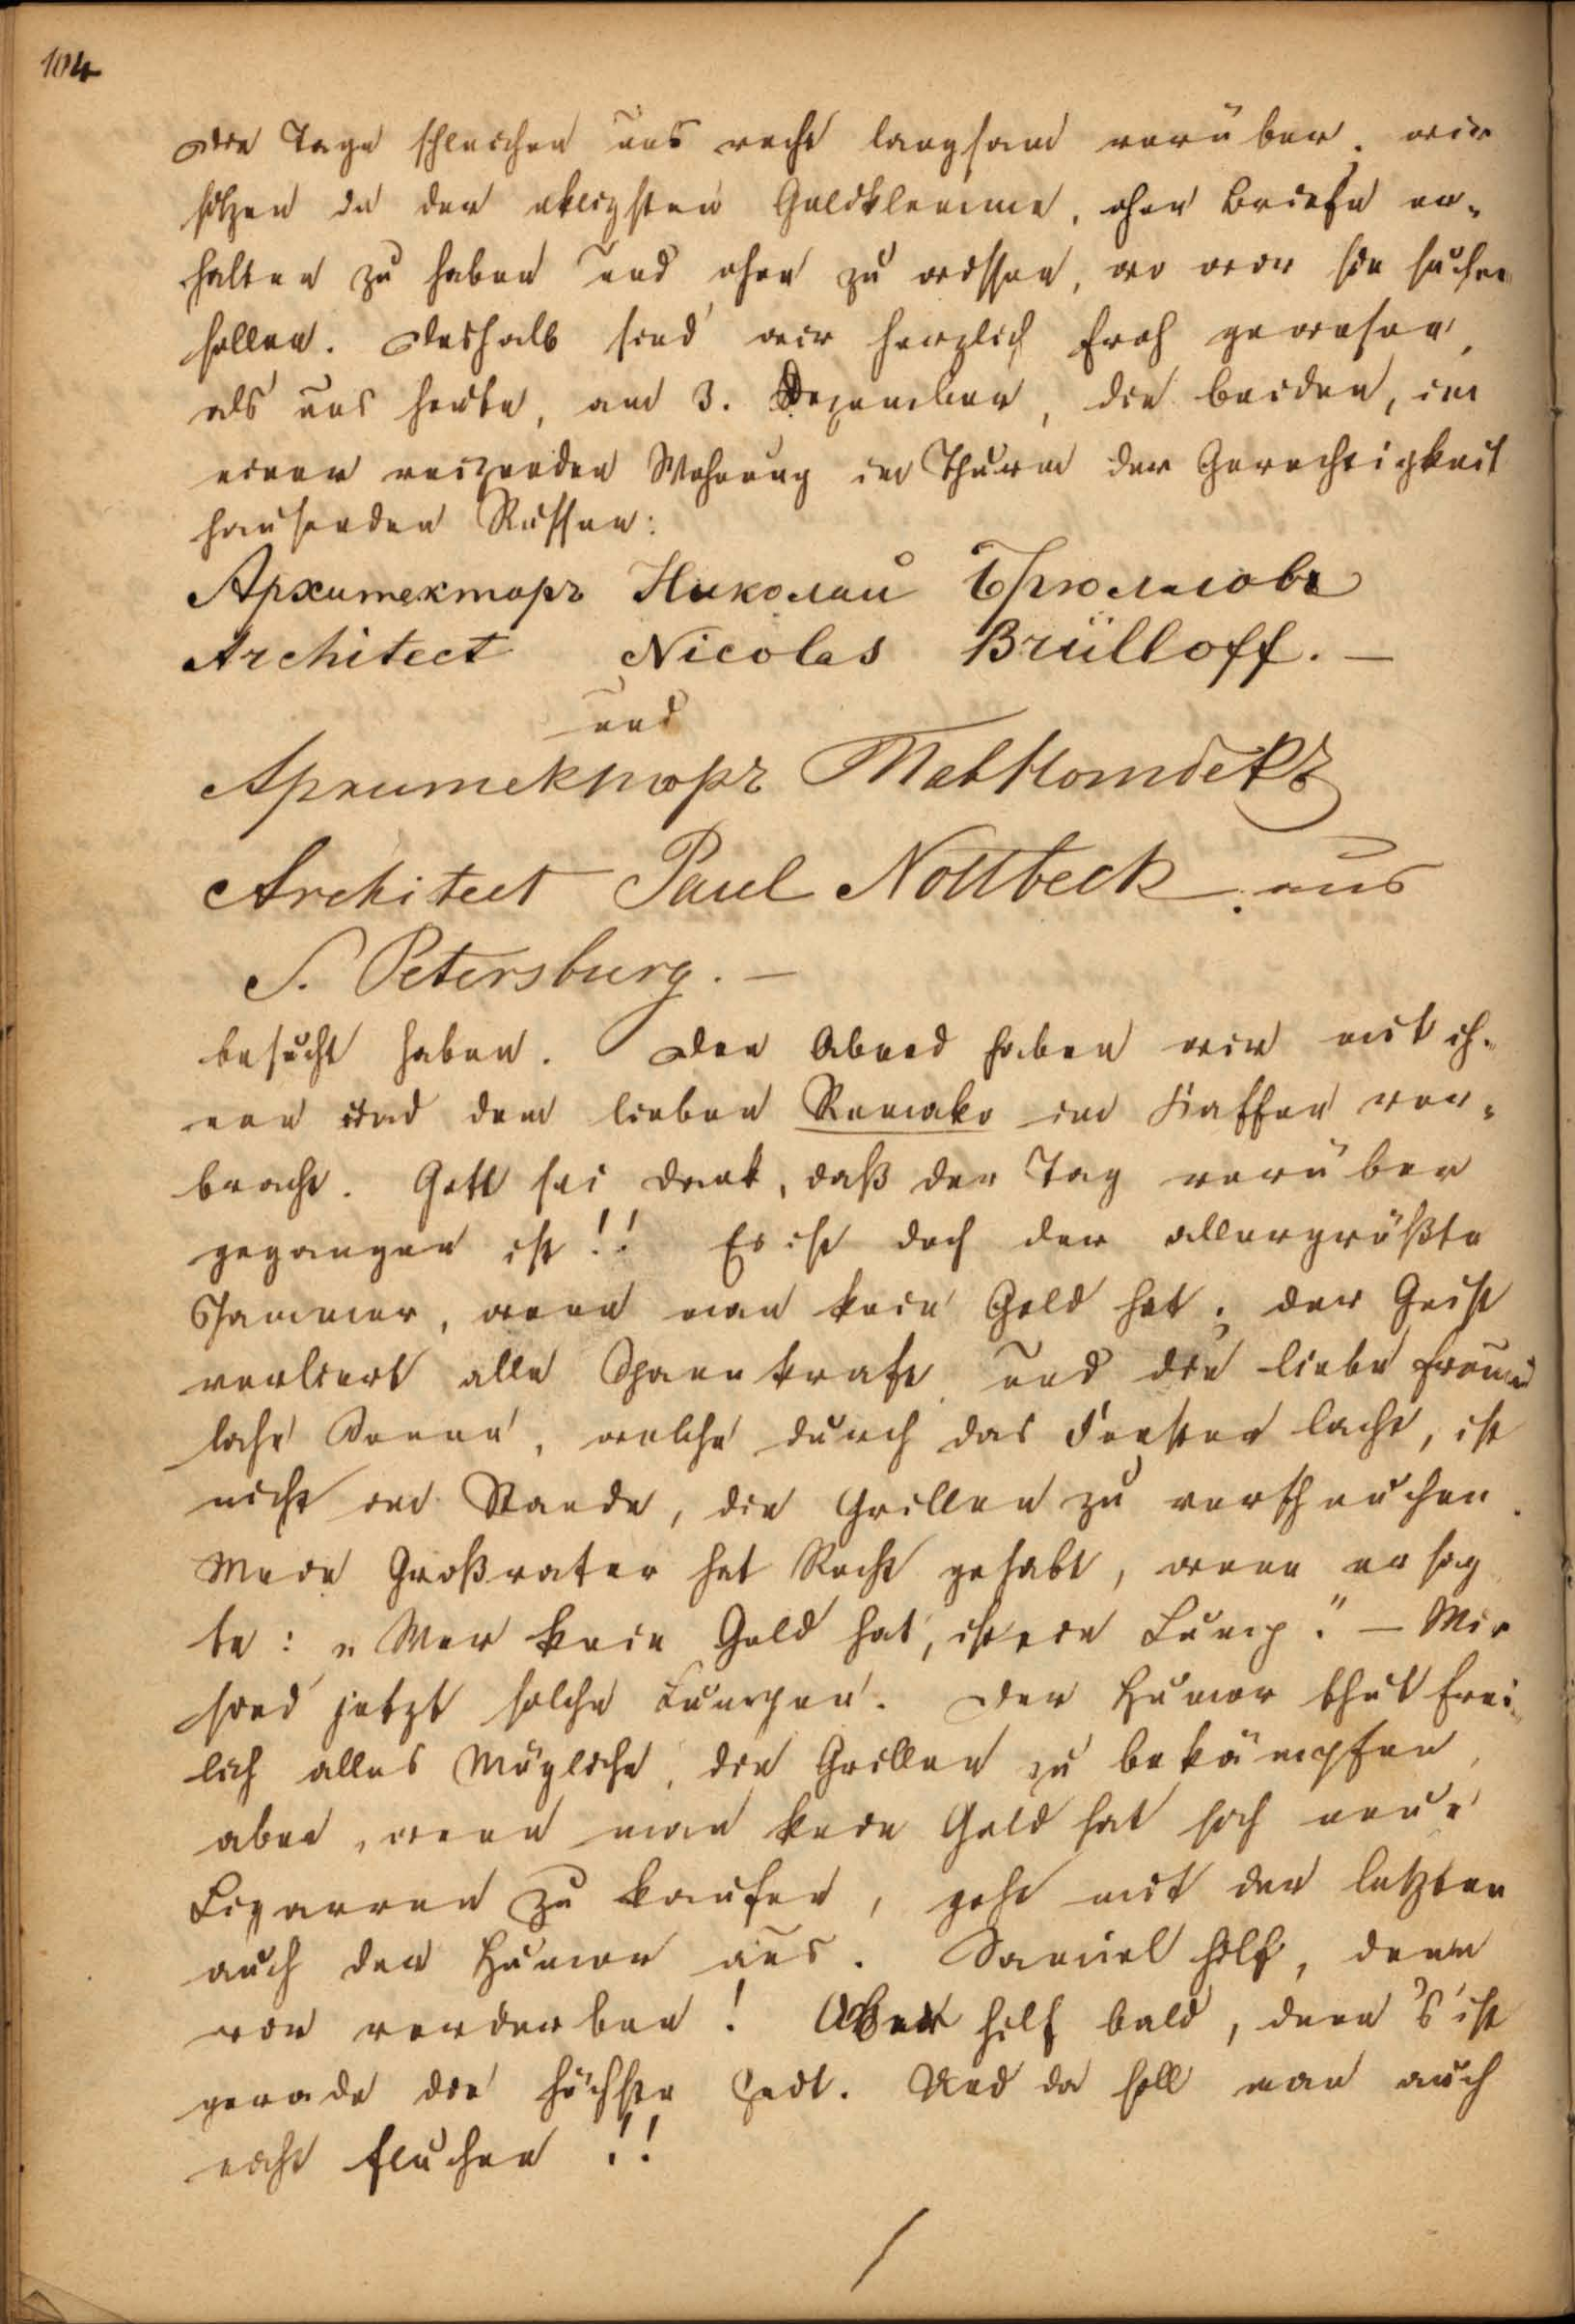 104
Die Tage schleichen uns recht langsam vorüber. wir
sitzen in der ekligsten Geldklemme, ohne Briefe er-
halten zu haben und ohne zu wissen, wo wir sie suchen
sollen. Deshalb sind wir herzlich froh gewesen,
als uns heute, am 3. Dezember, die beiden, in
einer reizenden Wohnung im Thurm der Gerechtigkeit
hausenden Russen:
Архитекторъ Николай Брюлловъ
Architect Nicolas Brülloff. —
und
Архитекторъ Павл Нотбекъ
Architect Paul Nottbeck aus
S. Petersburg. —
besucht haben. Den Abend haben wir mit ih-
nen und dem lieben Romako im Kaffee ver-
bracht. Gott sei Dank, daß der Tag vorüber
gegangen ist!! Es ist doch der allergrößte
Jammer, wenn man kein Geld hat; der Geist
verliert alle Spannkraft und die liebe freund
liche Sonne, welche durch das Fenster lacht, ist
nicht im Stande, die Grillen zu verscheuchen.
Mein Großvater hat Recht gehabt, wenn er sag
te: „Wer kein Geld hat, ist ein Lump." — Wir
sind jetzt solche Lumpen. Der Humor thut frei-
lich alles Mögliche, die Grillen zu bekämpfen,
aber, wenn man kein Geld hat sich neue
Cigarren zu kaufen, geht mit der letzten
auch der Humor aus. Samiel hilf, denn
wir verderben! Aber hilf bald, denn 's ist
gerade die höchste Zeit. Und da soll man auch
nicht fluchen!!